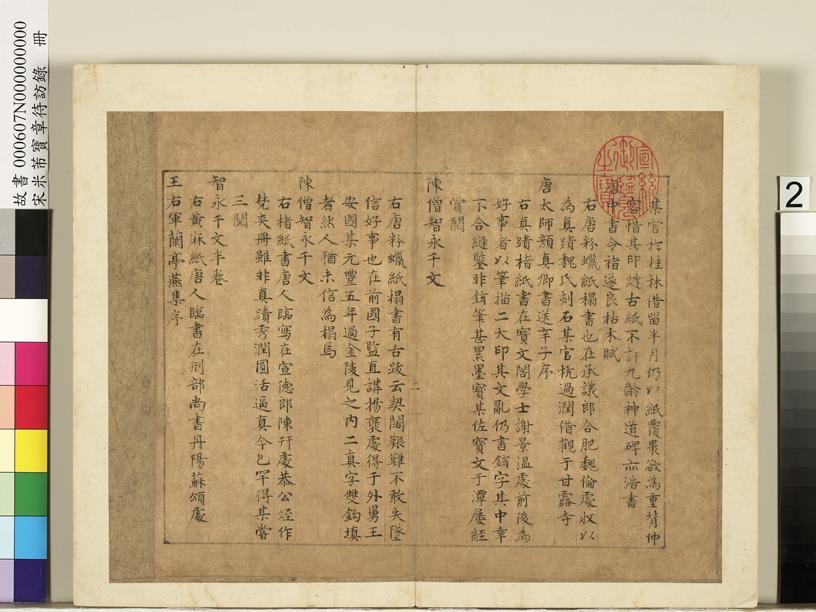 某官於桂林借留半月仍以紙覆裹欲為重背仲
容惜其印縫古紙不許九齡神道碑亦浩書
唐中書令褚遂良枯木賦
右唐粉蠟紙搨書也在承議郎合肥魏倫處收以
為真蹟魏氏刻石某官杭過潤借觀于甘露寺
唐太師顏真卿書送辛子序
右真蹟楮紙書在寶文閣學士謝景溫處前後為
好事者以筆描二大印其文亂仍書鎊字其中辜
不合縫鑒非鎊筆甚累墨寶某佐寶文于潭屢經
賞閱
陳僧智永千文
右唐粉蠟紙搨書有古跋云契闊艱難不敢失墜
信好事也在前國子監直講楊褒處得于外舅王
安國某元豐五年過金陵見之內二真字雙鈎填
者然人猶未信為搨焉
陳僧智永千文
右楮紙書唐人臨寫在宣德郎陳幵處恭公姪作
梵夾冊雖非真蹟秀潤圓活逼真今已罕得某嘗
三閱
智永千文半卷
右黃麻紙唐人臨書在刑部尚書丹陽蘇頌處
王右軍蘭亭燕集序
二
故書 000607N000000000
宋米芾寶章待訪錄 冊
2